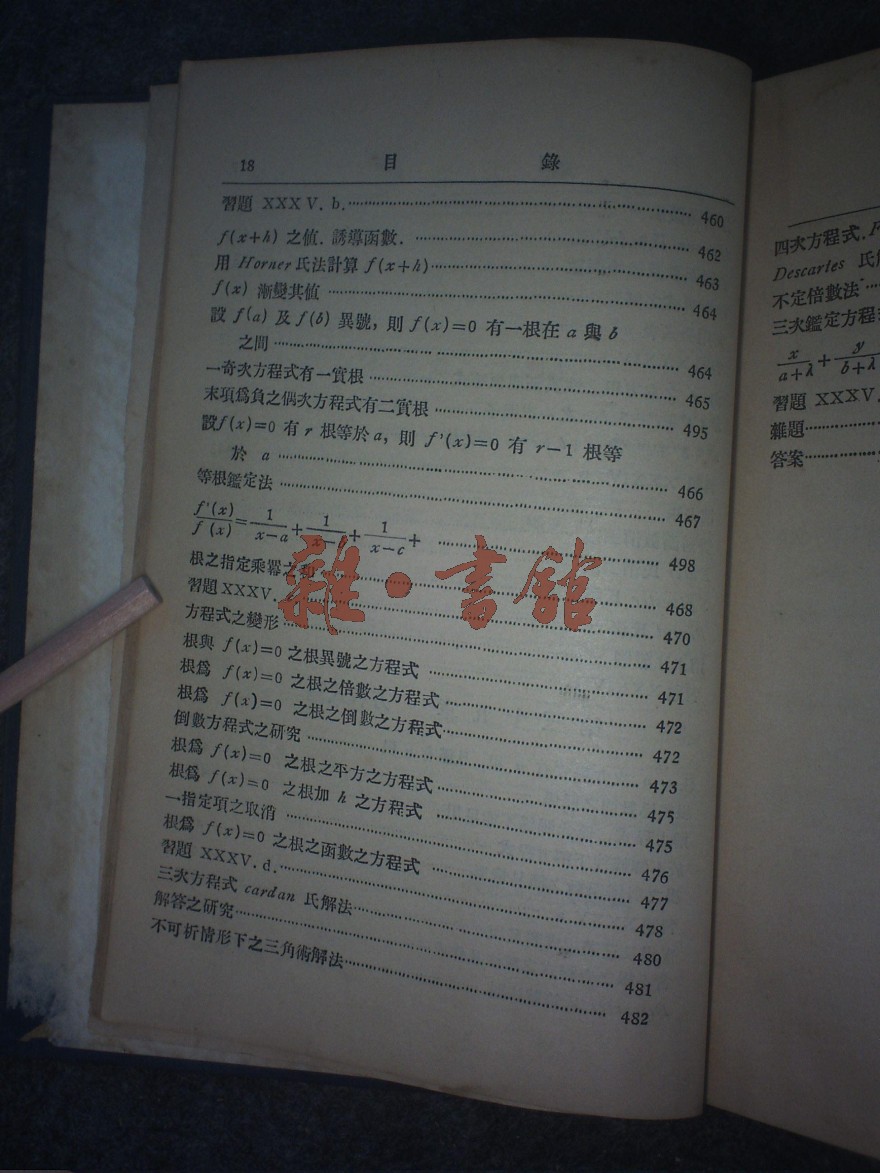 18 目 錄
習題 XXXV. b. 460
f(x+h) 之值. 誘導函數. 462
用 Horner氏法計算 f(x+h) 463
f(x) 漸變其值 464
設 f(a) 及 f(b) 異號, 則 f(x)=0 有一根在 a 與 b
之間 464
一奇次方程式有一實根 465
末項爲負之偶次方程式有二實根 495
設f(x)=0 有 r 根等於a, 則 f'(x)=0 有 r-1 根等
於 a 466
等根鑑定法 467
f'(x)/f(x)=1/x-a+1/x-b+1/x-c+ 498
根之指定乘羃之和 468
習題XXXV. 470
方程式之變形 471
根與 f(x)=0 之根異號之方程式 471
根爲 f(x)=0 之根之倍數之方程式 472
根爲 f(x)=0 之根之倒數之方程式 472
倒數方程式之研究 473
根爲 f(x)=0 之根之平方之方程式 475
根爲 f(x)=0 之根加 h 之方程式 475
一指定項之取消 476
根爲 f(x)=0 之根之函數之方程式 477
習題 XXXV. d. 478
三次方程式 cardan 氏解法 480
解答之研究 481
不可析情形下之三角術解法 482
雜·書館
四次方程式.
Descartes 氏
不定倍數法
三次鑑定方程
x/a+λ+y/b+λ
習題 XXXV.
雜題
答案